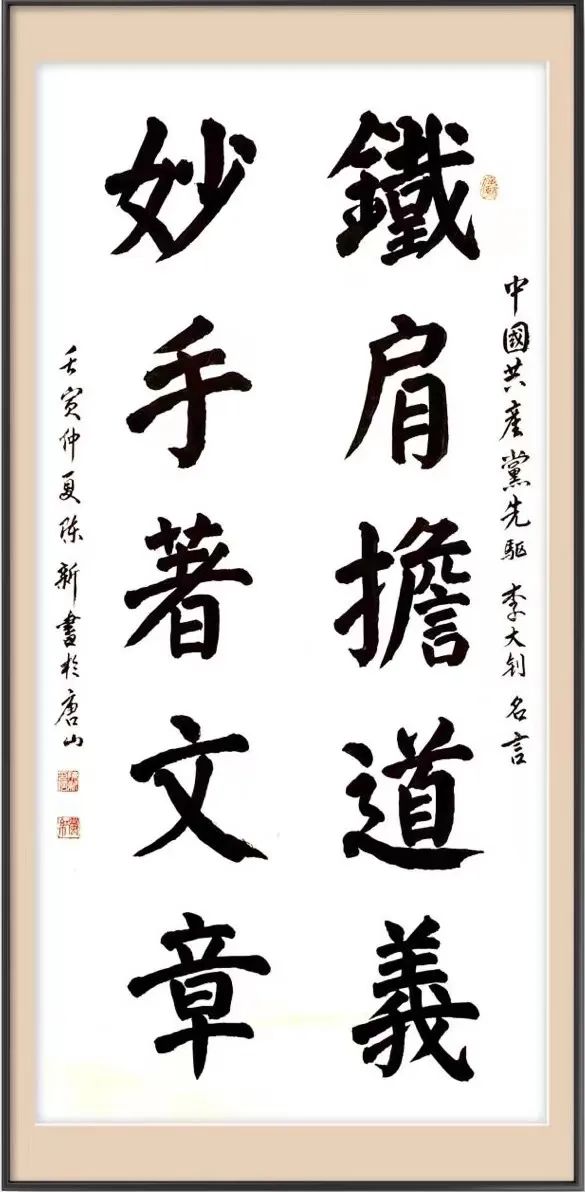 中國共產黨先驅 李大釗 名言
鐵肩擔道義
妙手著文章
壬寅仲夏陈新書於唐山